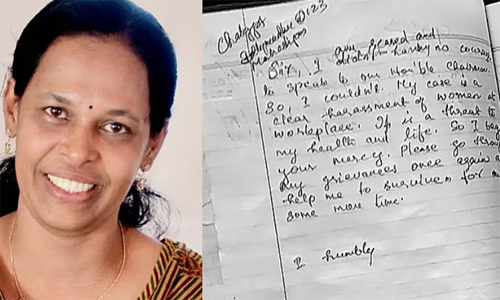 Sir, I am scared and
having no courage
to speak to our Hon'ble Chairman.
So, I couldn't. My case is a
clear harassment of women at
workplace. It is a threat to
my health and life. So I be
your mercy. Please go thro
my grievances once again
help me to survive for a
some more time.
I humbly